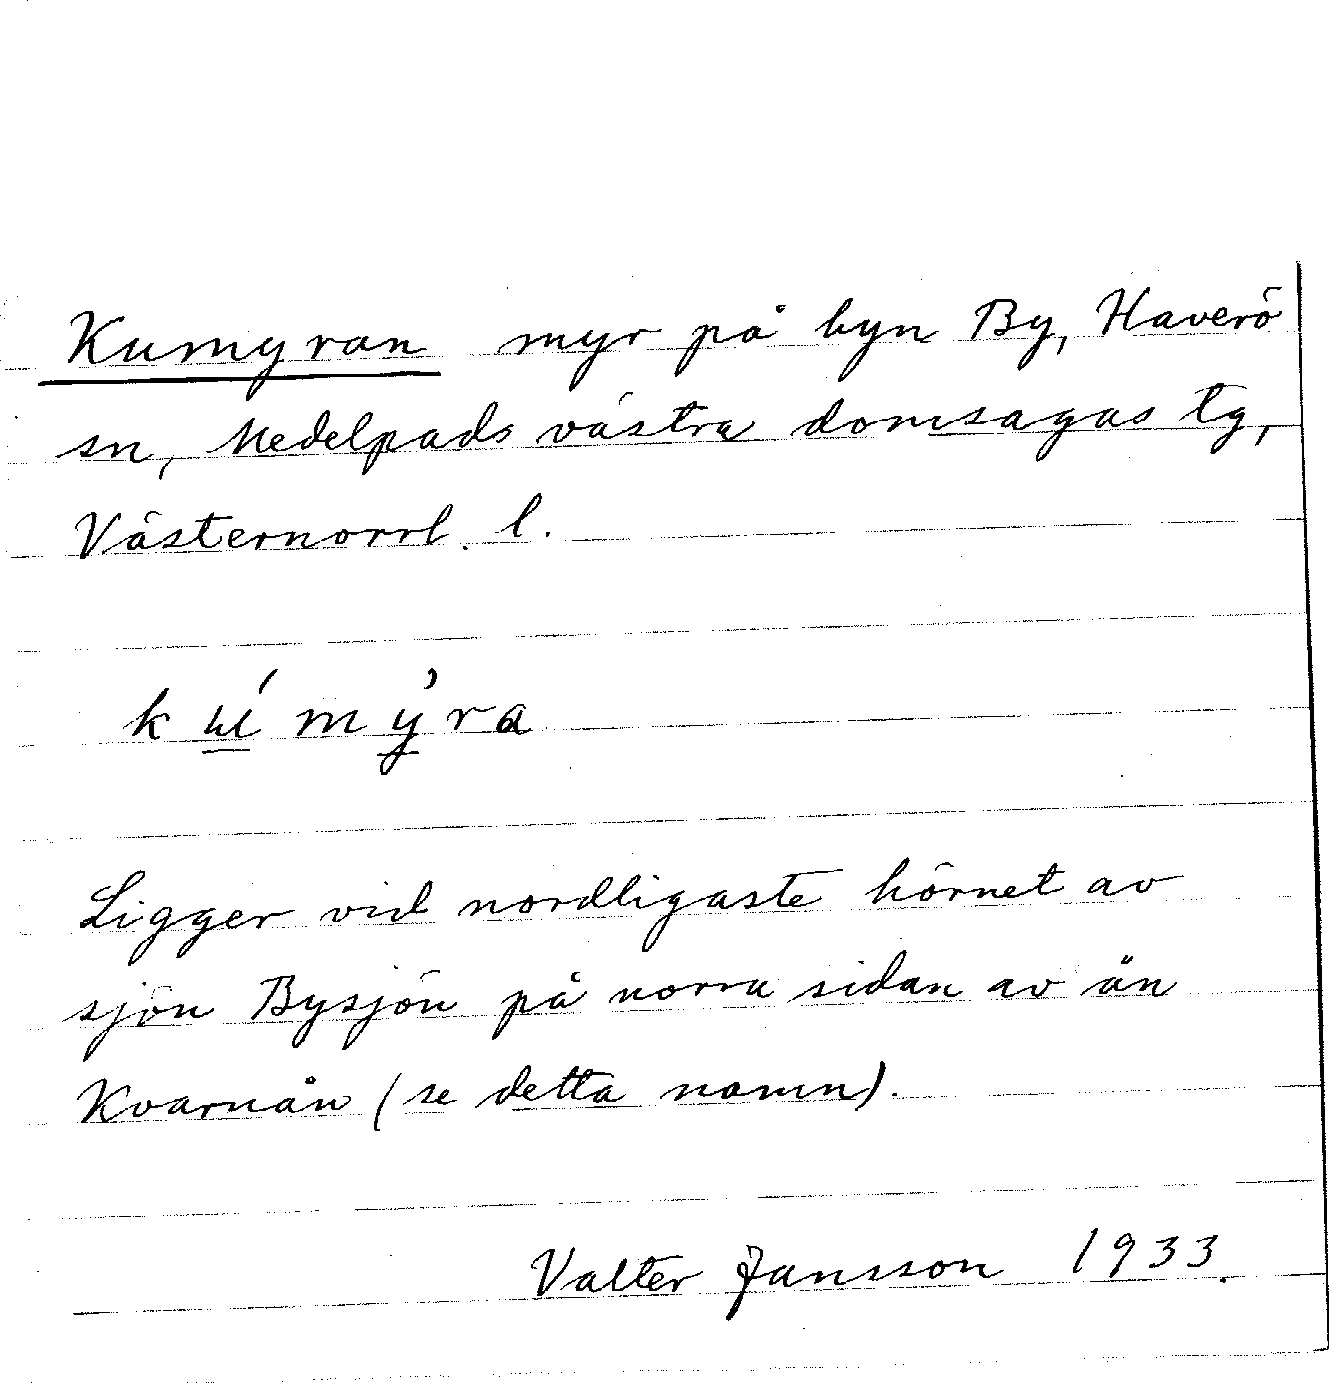 Kumyran myr på byn By, Haverö
sn, Medelpads västra domsagas tg,
Västernorrl. l.
kúmýra
Ligger vid nordligaste hörnet av
sjön Bysjön på norra sidan av ån
Kvarnån (se detta namn).
Valter Jansson 1933.